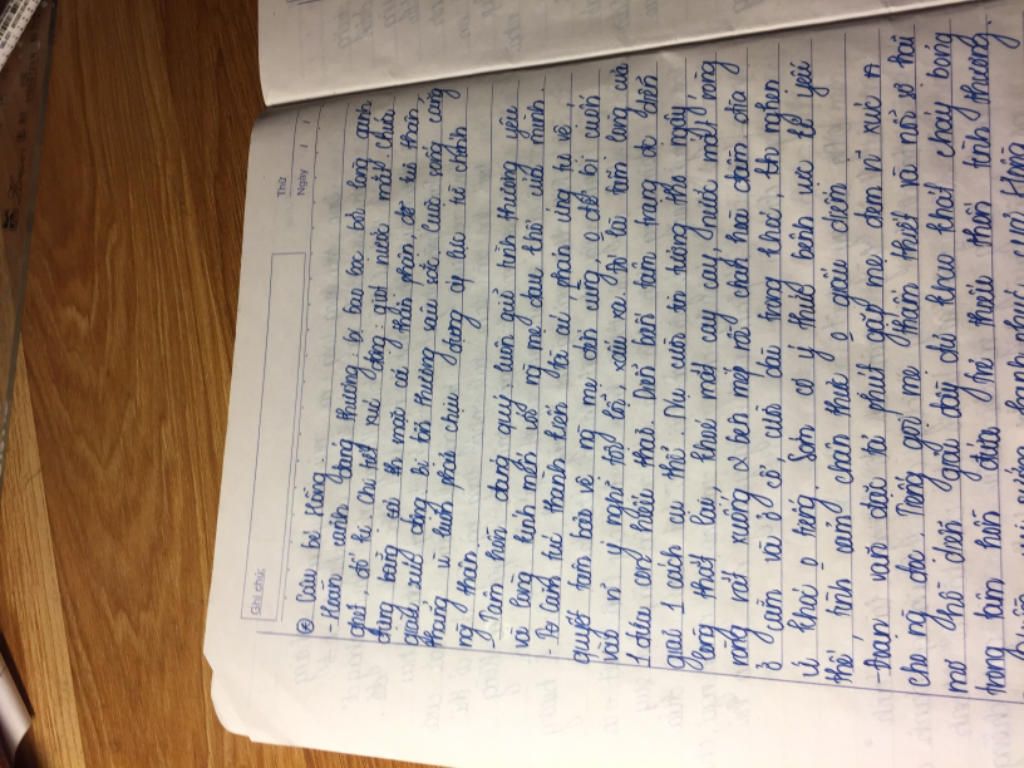 Ghi chú:
Thứ
Ngày / /
* Cậu bé Hồng
- Hoàn cảnh đáng thương, bị bao bọc bởi lòng quá
quắt, đố kị. Chi tiết xúc động: giọt nước mắt chứa
đựng trong đó th mồ côi, thân phận, đó là th
giá xúc động bị tổn thương sâu sắc. Cuộc sống căng
thẳng vì luôn phải chịu đựng áp lực từ chính
ng thân
- Tâm hồn đáng quý: luôn giữ tình thương yêu
và lòng kính mến với ng mẹ đau khổ của mình.
- Từ cảnh từ thành kiến bà cô, phản ứng tự vệ,
quyết tâm bảo vệ ng mẹ đến cùng, o để bị cuốn
vào n~ ý nghĩ tội lỗi, xấu xa. Tự lí tấn công của
1 đứa em hiếu thảo. Diễn biến tâm trạng đc diễn
giải 1 cách cụ thể: Dù cười to tưởng thơ ngây
lòng thắt lại, khoé mắt cay cay, nước mắt ròng
ròng rớt xuống 2 bên mép rồi chan hoà đầm đìa
ở cằm và ở cổ, cười dài trong tiếng khóc, to nghẹn
ứ khóc o ra tiếng. Sớm có ý thức bênh vực, tế yêu
thể trên cảm chân thực o gậu diễm
- Đoạn văn đặc tả phút gặp mẹ đem n~ xúc
cho ng đọc. Tiếng gọi mẹ thân thiết và nỗi xơ hãi
mơ hồ đến gấp gáy dì khao khát cháy bỏng
trong tâm hồn đứa trẻ thiếu thốn tình thương.